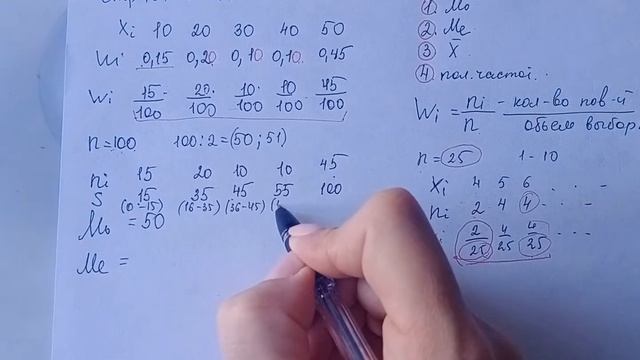 Xi 10 20 30 40 50
Wi 0,15 0,20 0,10 0,10 0,45
Wi 15/100 20/100 10/100 10/100 45/100
n=100 100:2=(50;51)
ni 15 20 10 10 45
S 15 35 45 55 100
(0-15) (16-35) (36-45) (
Mo = 50
Me =
1. Mo
2. Me
3 X̄
4 пол. частот..
Wi = ni/n - кол-во пов-й/объем выбор.
n=25 1-10
Xi 4 5 6 . . .
ni 2 4 4 - . .
2/25 4/25 4/25 . . .